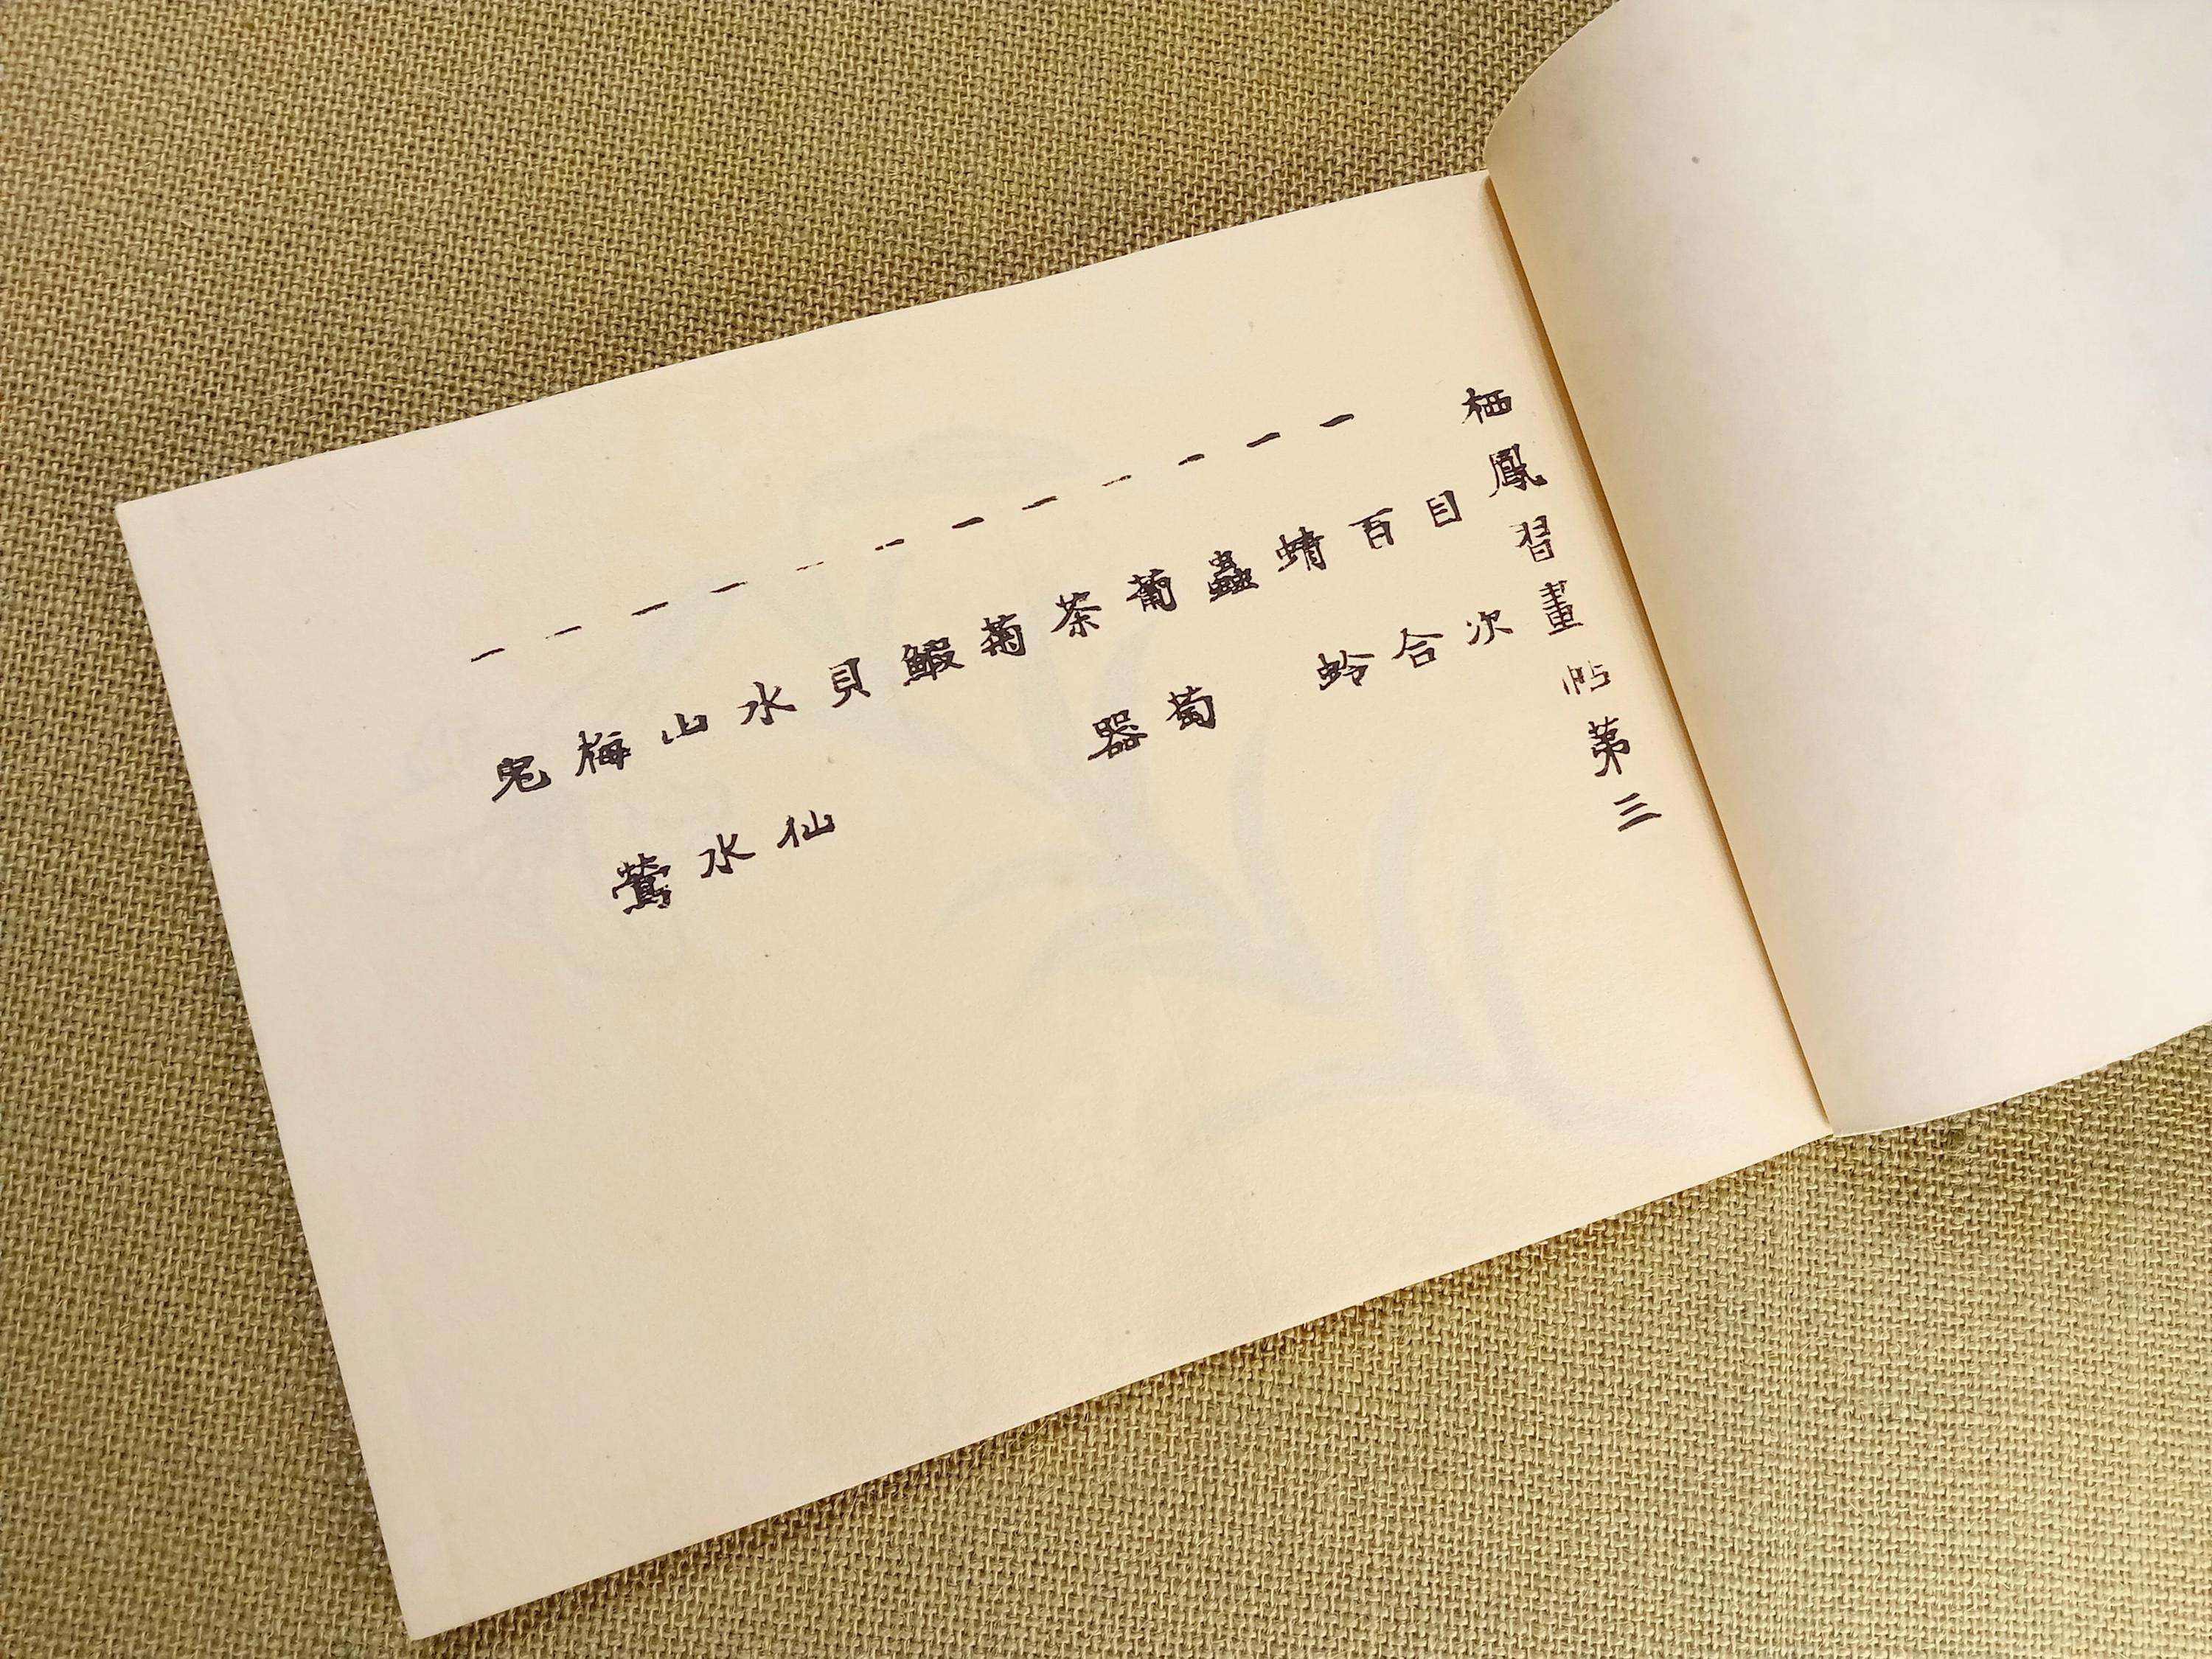 栖鳳習畫帖第三
目次
一百合
一蜻蛉
一蟲
一葡萄
一茶器
一菊
一鰕
一貝
一水仙
一山水
一梅鶯
一兎